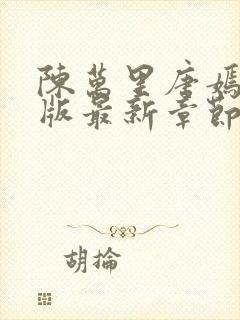 陳萬里唐嫣
版最新章節
胡掄